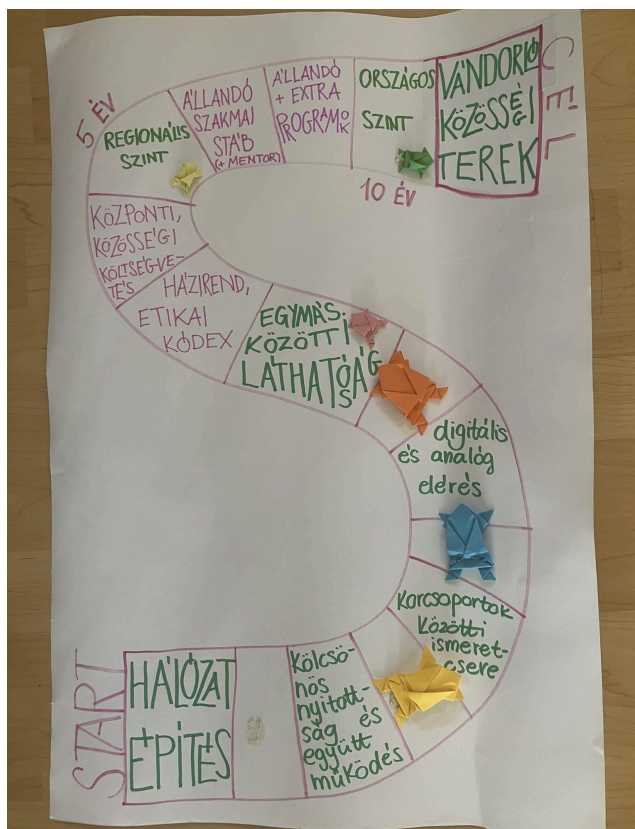 START
HÁLÓZAT
ÉPÍTÉS
Kölcsö-
nös
nyitott-
ság és
együtt
működés
Korcsoportok
Közötti
ismeret-
csere
digitális
és analóg
elérés
EGYMÁS
KÖZÖTTI
LÁTHATÓSÁG
HÁZIREND,
ETIKAI
KÓDEX
KÖZPONTI,
KÖZÖSSÉGI
KÖLTSÉGVE-
TÉS
5 ÉV
REGIONÁLIS
SZINT
ÁLLANDÓ
SZAKMAI
STÁB
(+ MENTOR)
ÁLLANDÓ
+ EXTRA
PROGRAMOK
ORSZÁGOS
SZINT
10 ÉV
VÁNDORLÓ
KÖZÖSSÉGI
TEREK
CÉL